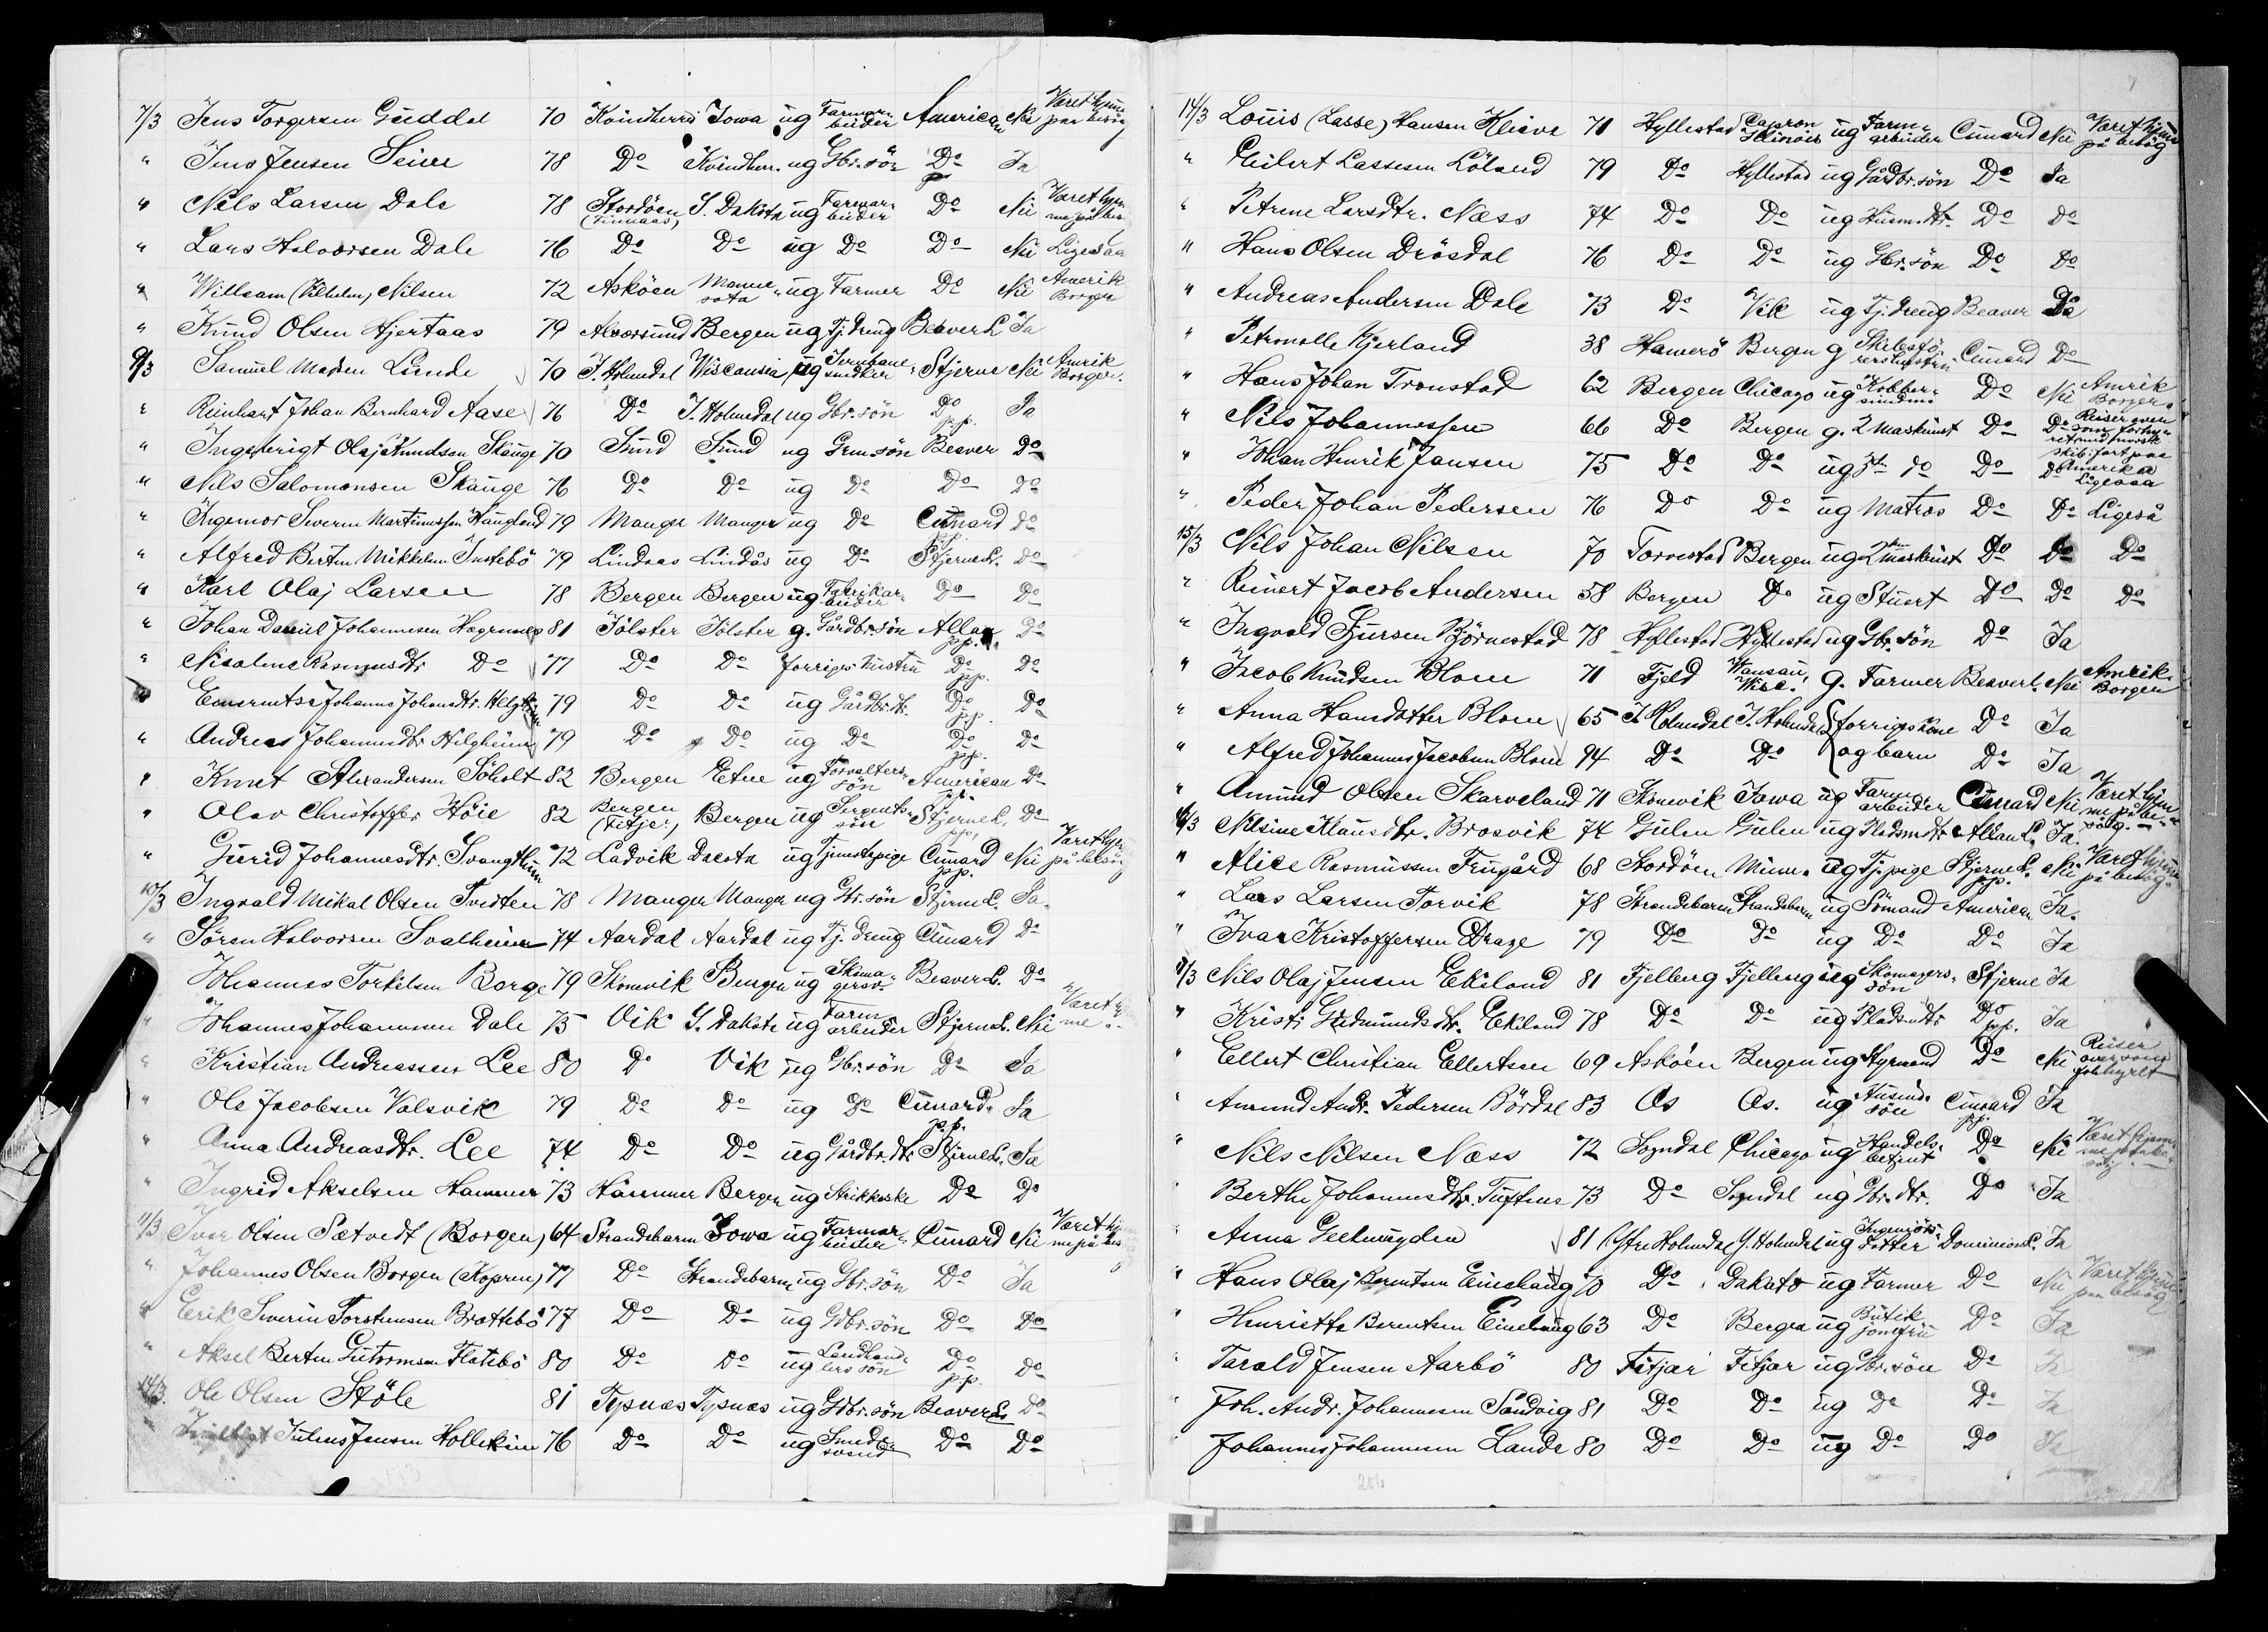 7/3 Jens Torgersen Guddal 70 Kvindherred Iowa ug Farmarbeider American Nei Været hjemme paa besøg
" Jens Jensen Seim 78 Do Kvindher. ug Gbr.søn Do Ja
" Nils Larsen Dale 78 Stordøen (Finnaas) S. Dakota ug Farmarbeider Do Nei Været hjemme på bes
" Lars Halvorsen Dale 76 Do Do ug Do Do Nei Ligesaa
" William (Vilhelm) Nilsen 72 Askøen Minnesota ug Farmer Do Nei Amerik Borger
" Knud Olsen Hjertaas 79 Alversund Bergen ug Tj. dreng Beaver L Ja
9/3 Samuel Madsen Lunde 70 I. Holmedal Wisconsin ug Jernbanesnedker Stjerne Nei Amrik Borger.
" Reinhart Johan Bernhard Aase 76 Do I. Holmedal ug Gbr. søn Do p.p. Ja
" Ingebrigt Olaj Knudsen Skauge 70 Sund Sund ug Grm. søn Beaver Do
" Nils Salomonsen Skauge 76 Do Do ug Do Do Do
" Ingemor Severin Martinussen Haugland 79 Manger Manger ug Do Cunard p.p. Do
" Alfred Bertin Mikkelsen Instebø 79 Lindaas Lindås ug Do Stjernel. Do
" Karl Olaj Larsen 78 Bergen Bergen ug Fabrikarbeider Do Do
" Johan Daniel Johannesen 81 Jølster Jølster g. Gårdbr. søn Allan p.p. Do
" Nicoline Rasmusdtr Do 77 Do Do forriges Hustru Do pp. Do
" Johanne Johansdtr. 79 Do Do ug Gårdbr. dt. Do p.p. Do
" Andrea Johannesdtr Helgheim 79 Do Do ug Do Do pp. Do
" Knut Alexandersen Søholt 82 Bergen Etne ug Forvaltersøn American p.p. Do
" Olav Christoffer Høie 82 Bergen (Fitjer) Bergen ug Sergentssøn Stjernel. pp. Do
" Gurid Johannesdtr. Svangthun 72 Ladvik Dacota ug Tjenestepige Cunard pp. Nei Været hjem på besøg
10/3 Ingvald Mikal Olsen Tvedten 78 Manger Manger ug Gbr. søn Stjerne L. Ja.
" Søren Halvorsen Svalheim 74 Aardal Aardal ug Tj. dreng Cunard Do
Johannes Torkelsen Borge 79 Skonevik Bergen ug Skomagersv. Beaver L. Do
" Johannes Johannesen Dale 75 Vik S. Dakota ug Farmarbeider Stjernel. Nei Været me
" Kristian Andreassen Lee 80 Do Vik ug Gbr. søn Do Ja
" Ole Jacobsen Valsvik 79 Do Do ug Do Cunard p.p. Ja
" Anna Andreasdtr. Lee 74 Do Do ug Gårdbr. dtr Stjernel. Ja
" Ingrid Akselsen Hammer 73 Hammer Bergen ug Strikkerske Do Do
11/3 Ivar Olsen Sætvedt (Borgen) 64 Strandebarm Iowa ug Farmarbeider Cunard Nei Været hjemme på bes
" Johannes Olsen Borgen (Kopren) 77 Do Strandebarm ug Gbr. søn Do Ja
" Erik Severin Torstensen Brattebø 77 Do Do ug Gdbr. søn Do Do
" Aksel Bertin Guttormsen Flatebø 80 Do Do ug Landhandlers søn Do pp. Do
14/3. Ole Olsen Støle 81 Tysnæs Tysnæs ug Gdbr. søn Beaver L Do
Julius Jensen Hollekim 76 Do Do ug Smedesvend Do Do
7
14/3 Louis (Lasse) Hansen Kleive 71 Hyllestad Capron Illinois ug Farmarbeider Cunard Nei Været hjemme på besøg
" Eilert Lassesen Løland 79 Do Hyllestad ug Gårdbr. søn Do Ja
" Petrine Larsdtr. Næss 74 Do Do ug Husm. dtr. Do Do
" Hans Olsen Drøsdal 76 Do Do ug Gbr. søn Do Do
" Andreas Andersen Dale 73 Do Vik ug Tj. dreng Beaver Do
" Petronelle Kjerland 38 Hamerø Bergen g Skibsførershustru Cunard Do
" Hans Johan Tronstad 62 Bergen Chicago ug Kobbersmed Do Nei Amrik Borger
" Nils Johannessen 66 Do Bergen g. 2 Maskinist Do Do Reiser over som forhyret med norsk skib: fart paa Amerika
" Johan Henrik Jansen 75 Do Do ug 3die do Do Do Ligesaa
" Peder Johan Pedersen 76 Do Do ug Matros Do Do Ligeså
15/3 Nils Johan Nilsen 70 Torvestad Bergen ug 2den maskinist Do Do Do
" Reinert Jacob Andersen 58 Bergen Do ug Stuert Do Do Do
" Ingvald Sjursen Bjørnestad 78 Hyllestad Hyllestad ug Gbr. søn Do Ja
" Jacob Knudsen Blom 71 Fjeld Wausau, Wisc. g. Farmer Beaver L. Nei Amrik. Borger
" Anna Hansdatter Blom 65 I. Holmedal I. Holmedal forriges kone Do Ja
" Alfred Johannes Jacobsen Blom 94 Do Do og barn Do Ja
" Amund Olsen Skarveland 71 Skonevik Iowa ug Farmarbeider Cunard Nei Været hjemme på besøg.
16/3 Nilsine Klausdtr. Brosvik 74 Gulen Gulen ug Pladsmdtr Allan L. Ja.
" Alice Rasmussen Frugård 68 Stordøen Minn. ug Tj. pige Stjernel. pp. Nei Været hjemme på besøg
" Lars Larsen Torvik 78 Strandebarm Strandebarm ug Sømand American Ja.
" Ivar Kristoffersen Drage 79 Do Do ug Do Do Ja
17/3 Nils Olaj Jensen Ekeland 81 Fjelberg Fjelberg ug Skomagerssøn Stjerne Ja
" Kristi Gudmundsdtr. Ekeland 78 Do Do ug Pladsmdtr Do p.p. Ja
" Ellert Christian Ellertsen 69 Askøen Bergen ug Styrmand Do Nei Reiser over som forhyret
" Amund Andr. Pedersen Børdal 83 Os Os. ug Husmdsøn Cunard pp. Ja
" Nils Nilsen Næss 72 Sogndal Chicago ug Handelsbetjent Do Nei Været hjemme på besøg
" Berthe Johannesdtr. Tuftene 73 Do Sogndal ug Gbr. dtr. Do Ja
" Anna Geelmuyden 81 Ytre Holmedal Y. Holmdal ug Ingeniørs Datter Dominion L. Ja
" Hans Olaj Berentsen Einehaug 70 Do Dakota ug Farmer Do Nei Været hjemme paa besøg
" Henrietta Berentsen Einehaug 63 Do Bergen ug Butikjomfru Do Ja
" Tarald Jensen Aarbø 80 Fitjar Fitjar ug Gbr. søn Do Ja
" Joh. Andr. Johannesen Sandvig 81 Do Do ug Do Do Ja
Johannes Johannesen Lande 80 Do Do ug Do Do Ja
206